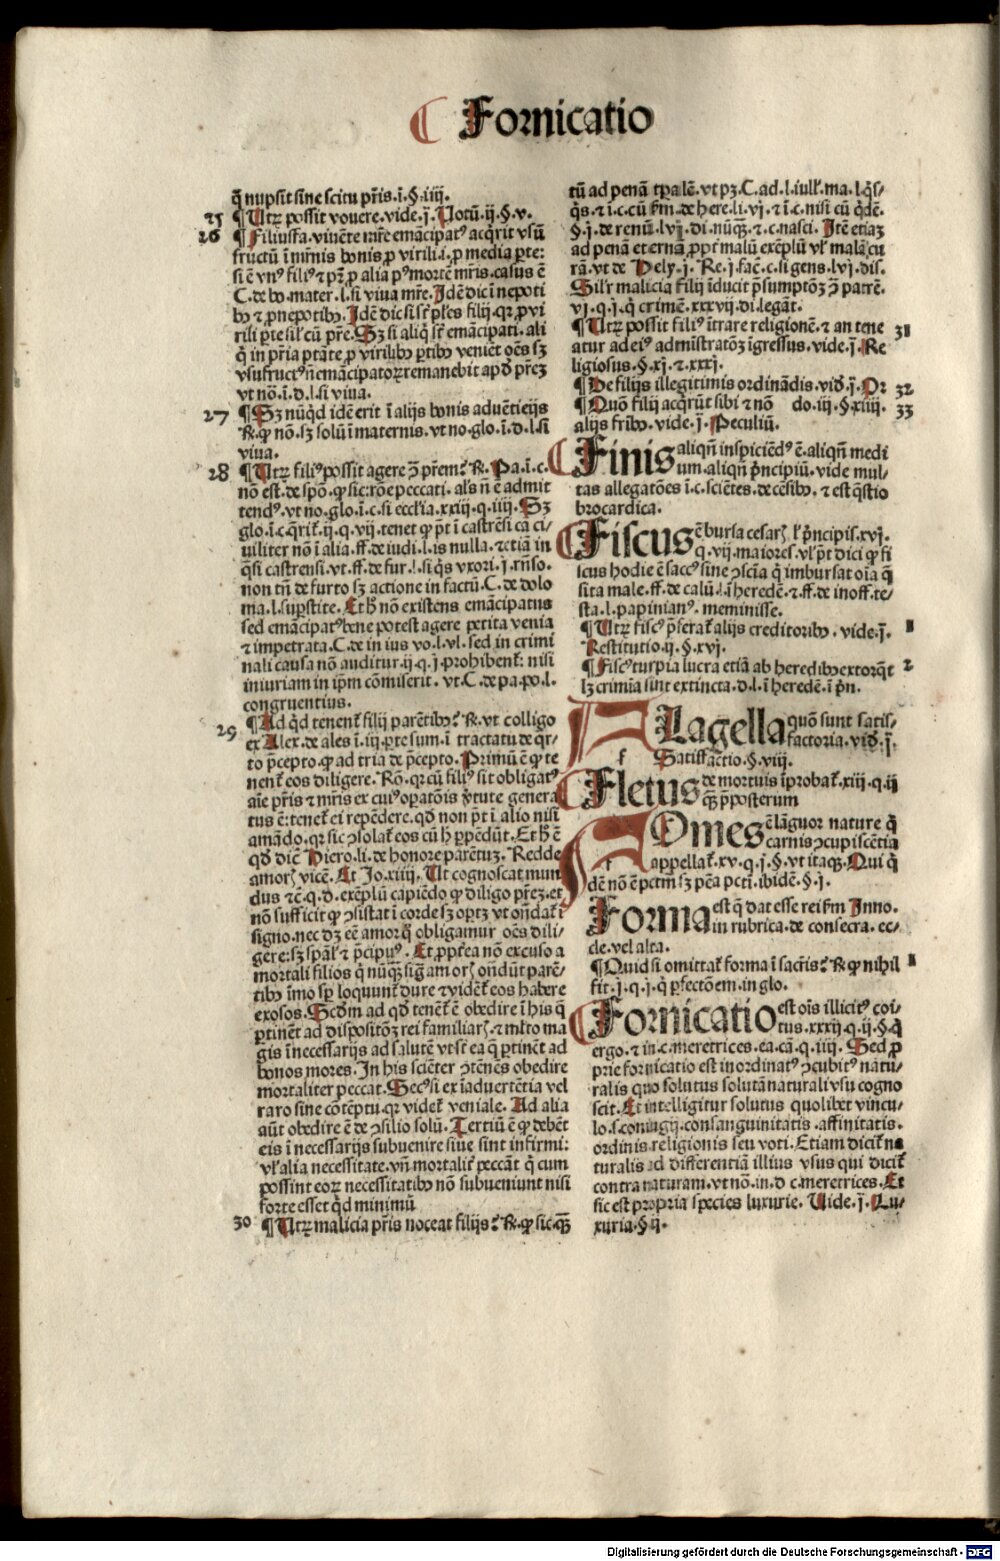 Fornicatio
q̄ nupsit sine scitu pr̄is. ī. §. iiij.
25 ¶ Utrꝫ possit vouere. vide. j̄. Votū. ij. §. v.
26 ¶ Filiusfa. viuēte mr̄e emācipatꝰ acq̄rit vsū
fructū ī mr̄nis bonis ꝓ virili .i. ꝓ media ꝑte:
si ē vnꝰ filiꝰ ⁊ pꝫ ꝓ alia pꝰ mortē mr̄is. casus ē
C. de bo. mater. l. si viua mr̄e. Idē dic ī nepoti
bꝰ ⁊ ꝓnepotibꝰ. Idē dic si sr̄t pl̄es filij. qꝛ ꝓ vi
rili ꝑte sil̄ cū pr̄e. Sꝫ si aliq̄ sr̄t emācipati. ali
q̄ in pr̄ia ptāte ꝓ virilibꝰ ꝑtibꝰ veniēt oēs sꝫ
vsufructꝰ n̄ emācipatoꝝ remanebit apd̄ pr̄eꝫ
vt nō. ī. d. l. si viua.
27 ¶ Sꝫ nūqd̄ idē erit ī alijs bonis aduēticijs
℟. ꝙ nō. sꝫ solū ī maternis. vt no. glo. ī. d. l. si
viua.
28 ¶ Utrꝫ filiꝰ possit agere ꝯ̄ pr̄em? ℟. Pa. ī. c.
nō est. de spō. ꝙ sic: rōe peccati. als n̄ ē admit
tendꝰ. vt no. glo. ī. c. si eccl̄ia. xxiij. q. iiij. Sꝫ
glo. ī. c. q̄rit̄. ij. q. vij. tenet ꝙ pt̄ ī castrēsi cā ci⸗
uiliter nō ī alia. ff. de iudi. l. is nulla. ⁊ etiā in
q̄si castrensi. vt. ff. de fur. l. si q̄s vxori. j. rn̄so.
non tn̄ de furto sꝫ actione in factū. C. de dolo
ma. l. suꝑstite. Et h̄ nō existens emācipatus
sed emācipatꝰ bene potest agere petita venia
⁊ impetrata. C. de in ius vo. l. vl. sed in crimi
nali causa nō auditur. ij. q. j. prohibent̄: nisi
iniuriam in ip̄m cōmiserit. vt. C. de pa. po. l.
congruentius.
29 ¶ Ad qd̄ tenent̄ filij parētibꝰ? ℟. vt colligo
ex Alex. de ales ī. iij. ꝑte sum. ī tractatu de qr̄⸗
to p̄cepto. ꝙ ad tria de p̄cepto. Primū ē ꝙ te
nent̄ eos diligere. Rō. qꝛ cū filiꝰ sit obligatꝰ
aīe pr̄is ⁊ mr̄is ex cuiꝰ oꝑatōis v̄tute genera
tus ē: tenet̄ ei repēdere. qd̄ non pt̄ ī alio nisi
amādo. qꝛ sic ꝯsolat̄ eos cū h̄ ꝑpēdūt. Et h̄ ē
qd̄ dic̄ Hiero. li. de honore parētuꝫ. Redde
amorꝫ vicē. Et Jo. xiiij. Ut cognoscat mun
dus ⁊c̄. q. d. exēplū capiēdo ꝙ diligo pr̄eꝫ. et
nō sufficit ꝙ ꝯsistat ī corde sꝫ oꝑtꝫ vt on̄dat̄ ī
signo. nec dꝫ eē amor q̄ obligamur oēs dili⸗
gere: sꝫ spāl̄ ⁊ p̄cipuꝰ. Et ꝓpt̄ea nō excuso a
mortali filios q̄ nūqꝫ sig̃ amorꝫ on̄dūt parē⸗
tibꝰ īmo sꝑ loquunt̄ dure ⁊ vident̄ eos habere
exosos. Scd̄m ad qd̄ tenet̄ ē obedire ī his q̄
ꝑtinēt ad dispositōꝫ rei familiarꝫ. ⁊ ml̄to ma
gis ī necessarijs ad salutē vtsr̄t ea q̄ ꝑtinēt ad
bonos mores. In his sciēter ꝯtēnēs obedire
mortaliter peccat. Secꝰ si ex īaduertētia vel
raro sine cōtēptu. qꝛ videt̄ veniale. Ad alia
aūt obedire ē de ꝯsilio solū. Tertiū ē ꝙ debēt
eis ī necessarijs subuenire siue sint infirmi:
vl̄ alia necessitate. vn̄ mortalit̄ peccāt q̄ cum
possint eoꝝ necessitatibꝰ nō subueniunt nisi
forte esset qd̄ minimū
30 ¶ Utrꝫ malicia pr̄is noceat filijs? ℟. ꝙ sic. qꝫ
tū ad penā tꝑalē. vt pꝫ. C. ad. l. iull̄. ma. l. q̄s⸗
q̄s. ⁊ ī. c. cū fm̄. de here. li. vj. ⁊ ī. c. nisi cū q̄dē.
§. j. de renū. lvj. di. nūqꝫ. ⁊. c. nasci. Itē etiaꝫ
ad penā eternā ꝓpt̄ malū exēplū vl̄ malā cu
rā. vt de Hely. j. Re. j. fac̄. c. si gens. lvj. dis.
Sil̄r malicia filij īducit p̄sumptōꝫ ꝯ̄ patrē.
vj. q. j. q̄ crimē. xxxvij. di. legāt.
¶ Utrꝫ possit filiꝰ ītrare religionē. ⁊ an tene 31
atur ad eiꝰ admīstratōꝫ īgressus. vide. j̄. Re
ligiosus. §. xj. ⁊. xxxj.
¶ De filijs illegitimis ordināndis. vid̄. j̄. Or 32
¶ Quō filij acq̄rūt sibi ⁊ nō do. iij. §. xiiij. 33
alijs frībꝰ. vide. j̄. Peculiū.
Finis aliqn̄ inspiciēdꝰ ē. aliqn̄ medi
um. aliqn̄ p̄ncipiū. vide mul⸗
tas allegatōes ī. c. sciētes. de cēsibꝰ. ⁊ est q̄stio
brocardica.
Fiscus ē bursa cesarꝫ l̄ p̄ncipis. xvj.
q. vij. maiores. vl̄ pt̄ dici ꝙ fi
scus hodie ē saccꝰ sine ꝯsciā q̄ imbursat oīa q̄
sita male. ff. de calū. l. ī heredē. ⁊. ff. de inoff. te⸗
sta. l. papinianꝰ. meminisse.
¶ Utrꝫ fiscꝰ p̄ferat̄ alijs creditoribꝰ. vide. j̄. 1
Restitutio. ij. §. xvj.
¶ Fiscꝰ turpia lucra etiā ab heredibꝰ extorq̄t 2
lꝫ crimīa sint extincta. d. l. ī heredē. ī p̄n.
FLagella quō sunt satis⸗
factoria. vid̄. j̄.
Satisfactio. §. viij.
Fletus de mortuis īprobat̄. xiij. q. ij
qꝫ p̄posterum
FOmes ē lāguor nature q̄
carnis ꝯcupiscētia
appellat̄. xv. q. j. §. vt itaqꝫ. Qui q̄
dē nō ē pctm̄ sꝫ pēa pcti. ibidē. §. j.
Forma est q̄ dat esse rei fm̄ Inno.
in rubrica. de consecra. ec⸗
cle. vel alta.
¶ Quid si omittat̄ forma ī sacr̄is? ℟. ꝙ nihil 1
fit. j. q. j. q̄ ꝑfectōem. in glo.
Fornicatio est oīs illicitꝰ coi⸗
tus. xxxij. q. ij. §. q̄
ergo. ⁊ in. c. meretrices. ea. cā. q. iiij. Sed ꝓ
prie fornicatio est inordinatꝰ ꝯcubitꝰ natu⸗
ralis quo solutus solutā naturali vsu cogno
scit. Et intelligitur solutus quolibet vincu⸗
lo. s. coniugij. consanguinitatis. affinitatis.
ordinis. religionis seu voti. Etiam dicit̄ na
turalis ad differentiā illius vsus qui dicit̄
contra naturam. vt nō. in. d. c. meretrices. Et
sic est propria species luxurie. Uide. j̄. Lu⸗
xuria. §. ij.
Digitalisierung gefördert durch die Deutsche Forschungsgemeinschaft - DFG